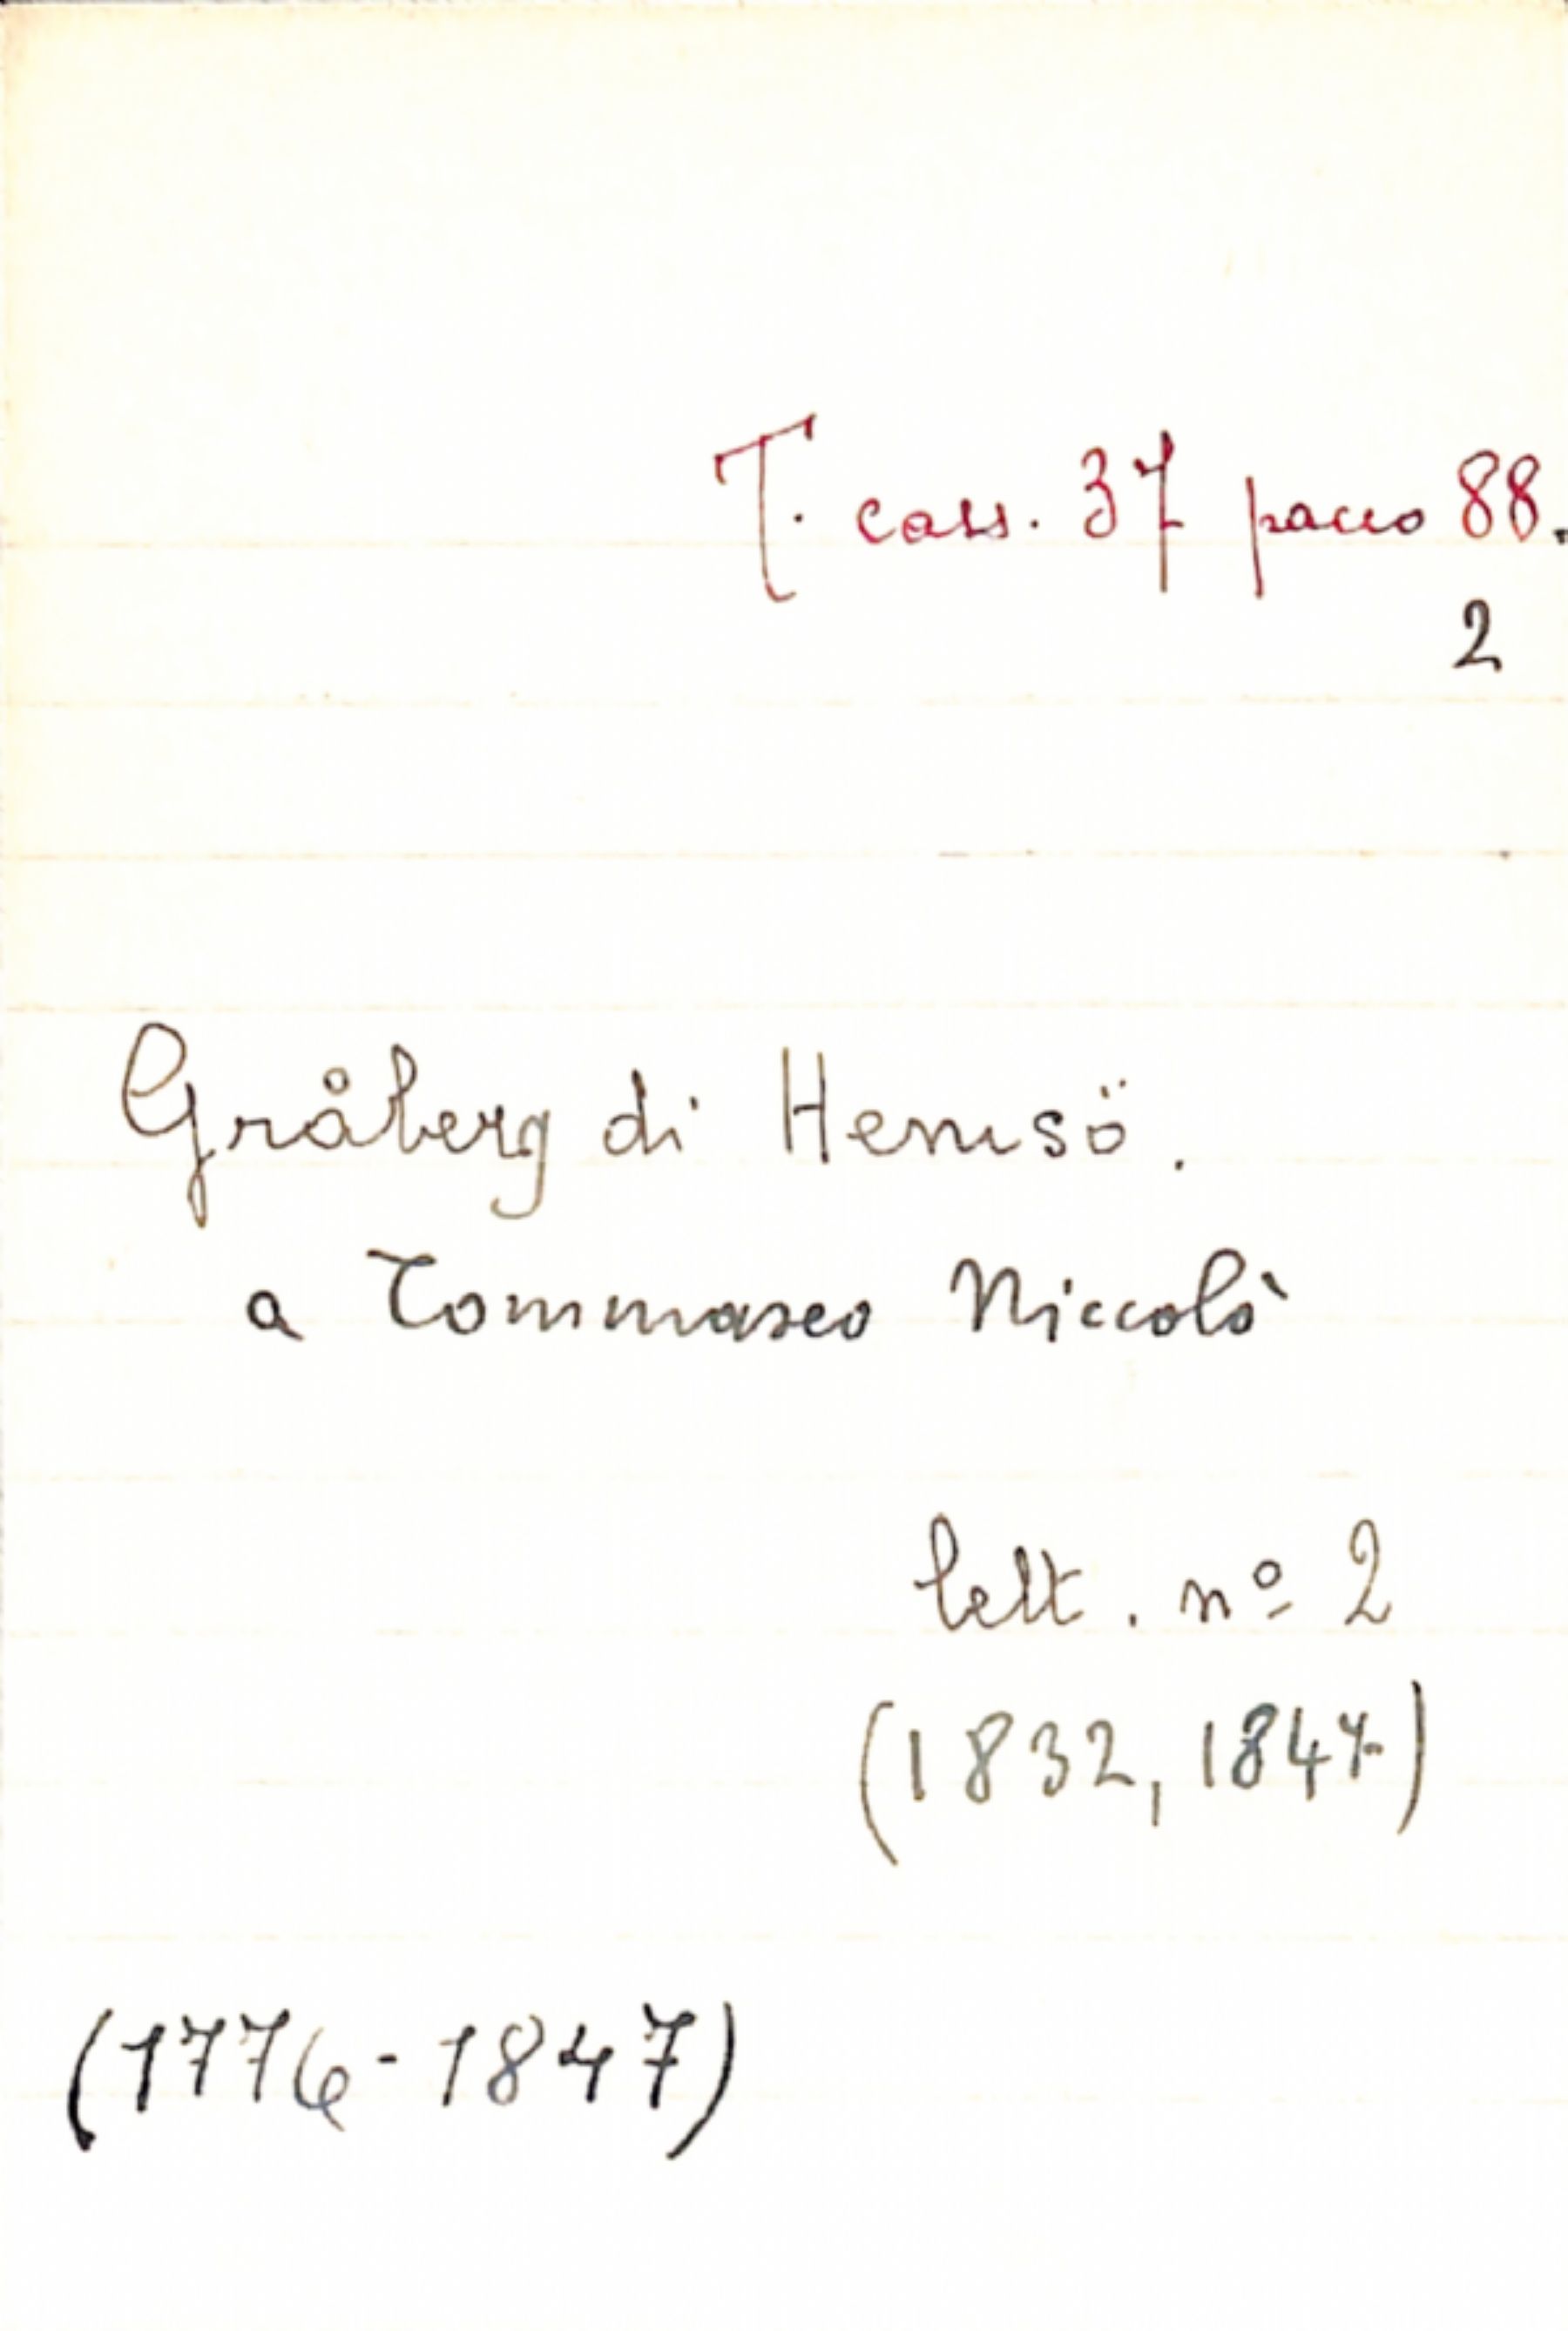 T. cass. 37 pacco 88.
2
Gråberg di Hemsö.
a Tommaseo Niccolò
lett. nº 2
(1832, 1847)
(1776-1847)